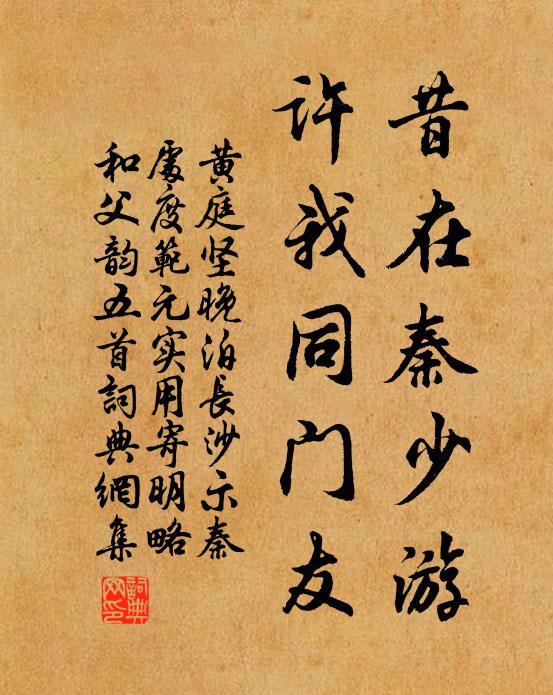 昔在秦少游
许我同门友
黄庭坚晚泊長沙示秦
處度範元实用寄明略
和父韵五首詞典網集
詞典网印